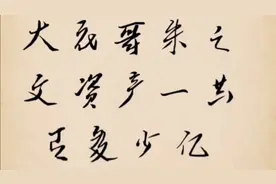 大衣哥朱之
文资产一共
有多少亿